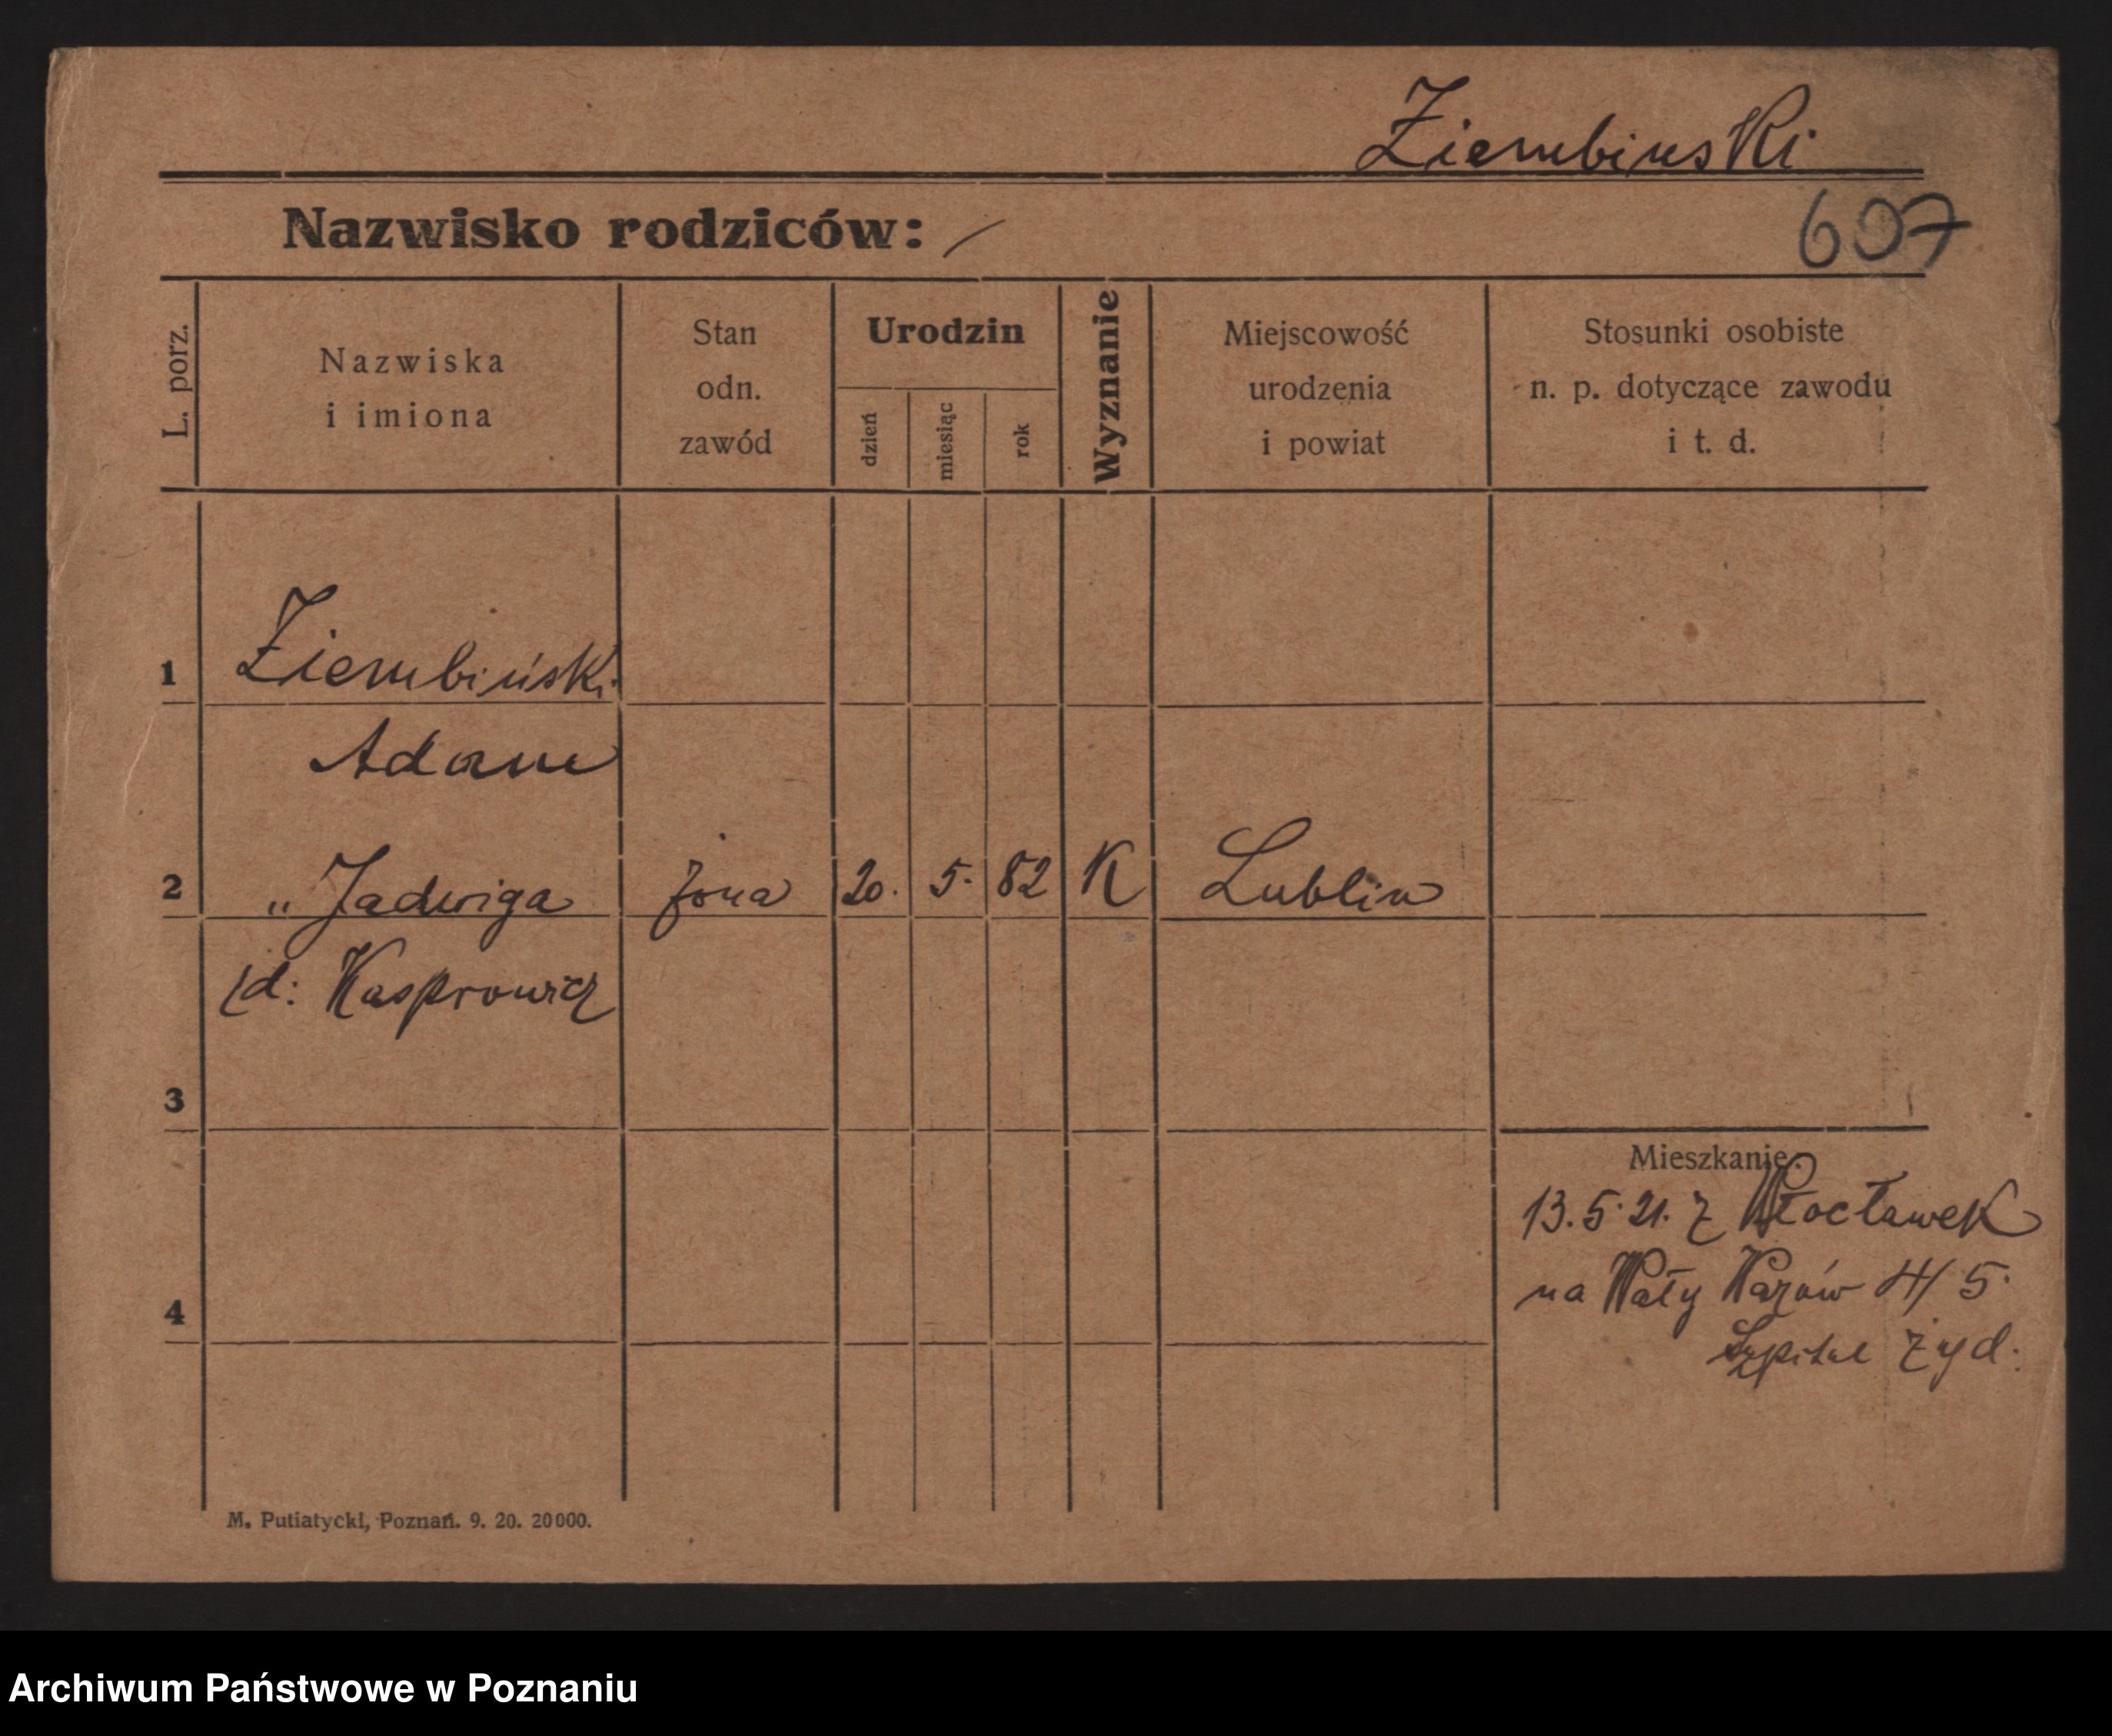 Ziembinski
Nazwisko rodziców: /
607
L. porz.
Nazwiska
i imiona
Stan
odn.
zawód
Urodzin
dzień
miesiąc
rok
Wyznanie
Miejscowość
urodzenia
i powiat
Stosunki osobiste
n. p. dotyczące zawodu
i t. d.
1 Ziembiński
Adam
2 " Jadwiga żona 20. 5. 82 K Lublin
/d: Kasprowicz
3
Mieszkanie:
13. 5. 21. z Włocławek
na Wały Wazów 4/5
4
Szpital żyd.
M. Putiatycki, Poznań. 9. 20. 20000.
Archiwum Państwowe w Poznaniu